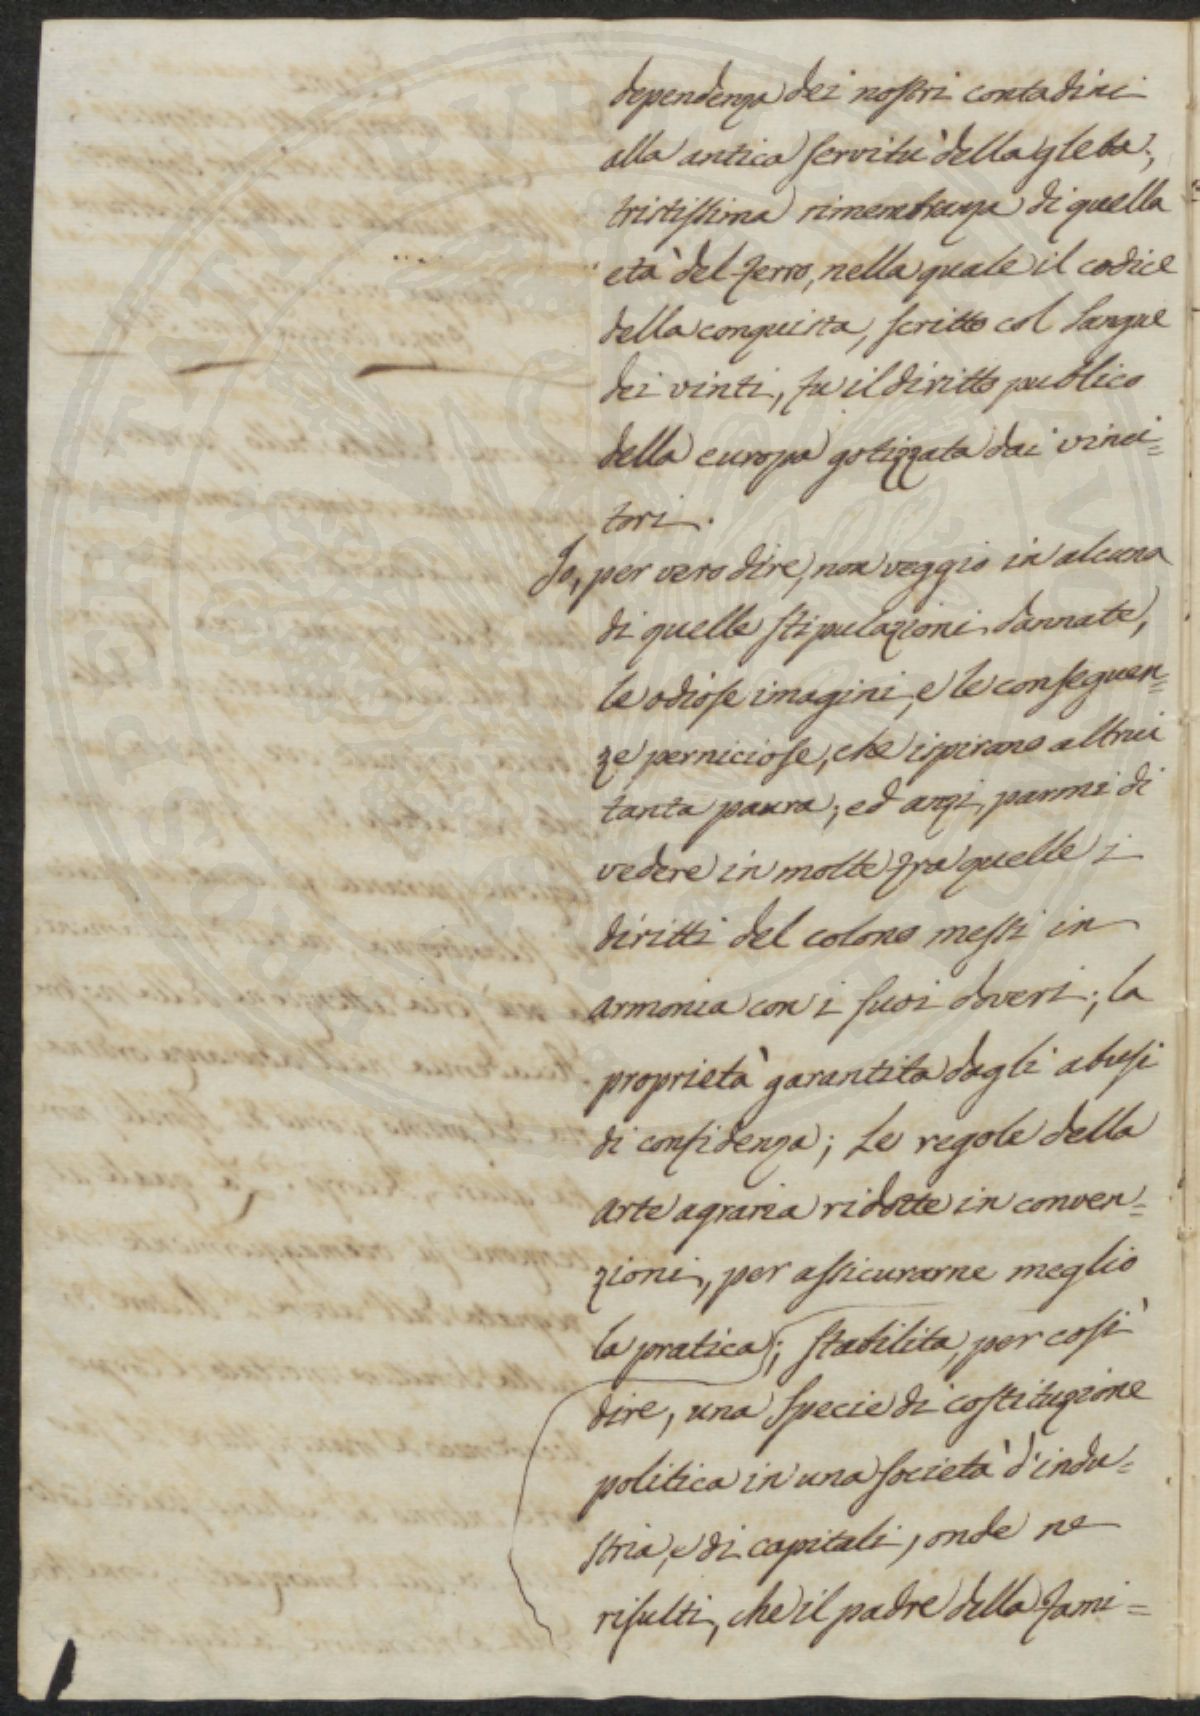 dependenza dei nostri contadini
alla antica servitù della gleba;
tristissima rimembranza di quella
età del ferro, nella quale il codice
della conquista, scritto col sangue
dei vinti, fu il diritto publico
della europa gotizzata dai vinci=
tori.
Io, per vero dire, non veggio in alcuna
di quelle stipulazioni dannate,
le odiose imagini, e le conseguen=
ze perniciose, che ispirano altrui
tanta paura; ed anzi parmi di
vedere in molte fra quelle i
diritti del colono messi in
armonia con i suoi doveri; la
proprietà garantita dagli abusi
di confidenza; Le regole della
arte agraria ridotte in conven=
zioni, per assicurarne meglio
la pratica; stabilita, per così
dire, una specie di costituzione
politica in una società d'indu=
stria, e di capitali, onde ne
risulti, che il padre della fami=